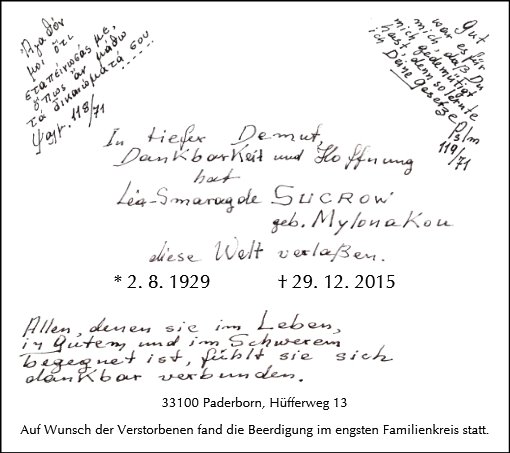 Ἀγαθόν
μοι ὅτι
ἐταπείνωσάς με,
ὅπως ἄν μάθω
τά δικαιώματά σου
Ψαλμ. 118/71
Gut
war es für
mich, daß Du
mich gedemütigt
hast, denn so lernte
ich Deine Gesetze
Pslm
119/71
In tiefer Demut,
Dankbarkeit und Hoffnung
hat
Léa-Smaragde SUCROW
geb. Mylonakou
diese Welt verlaßen.
* 2. 8. 1929 † 29. 12. 2015
Allen, denen sie im Leben,
in Gutem und im Schwerem
begegnet ist, fühlt sie sich
dankbar verbunden.
33100 Paderborn, Hüfferweg 13
Auf Wunsch der Verstorbenen fand die Beerdigung im engsten Familienkreis statt.